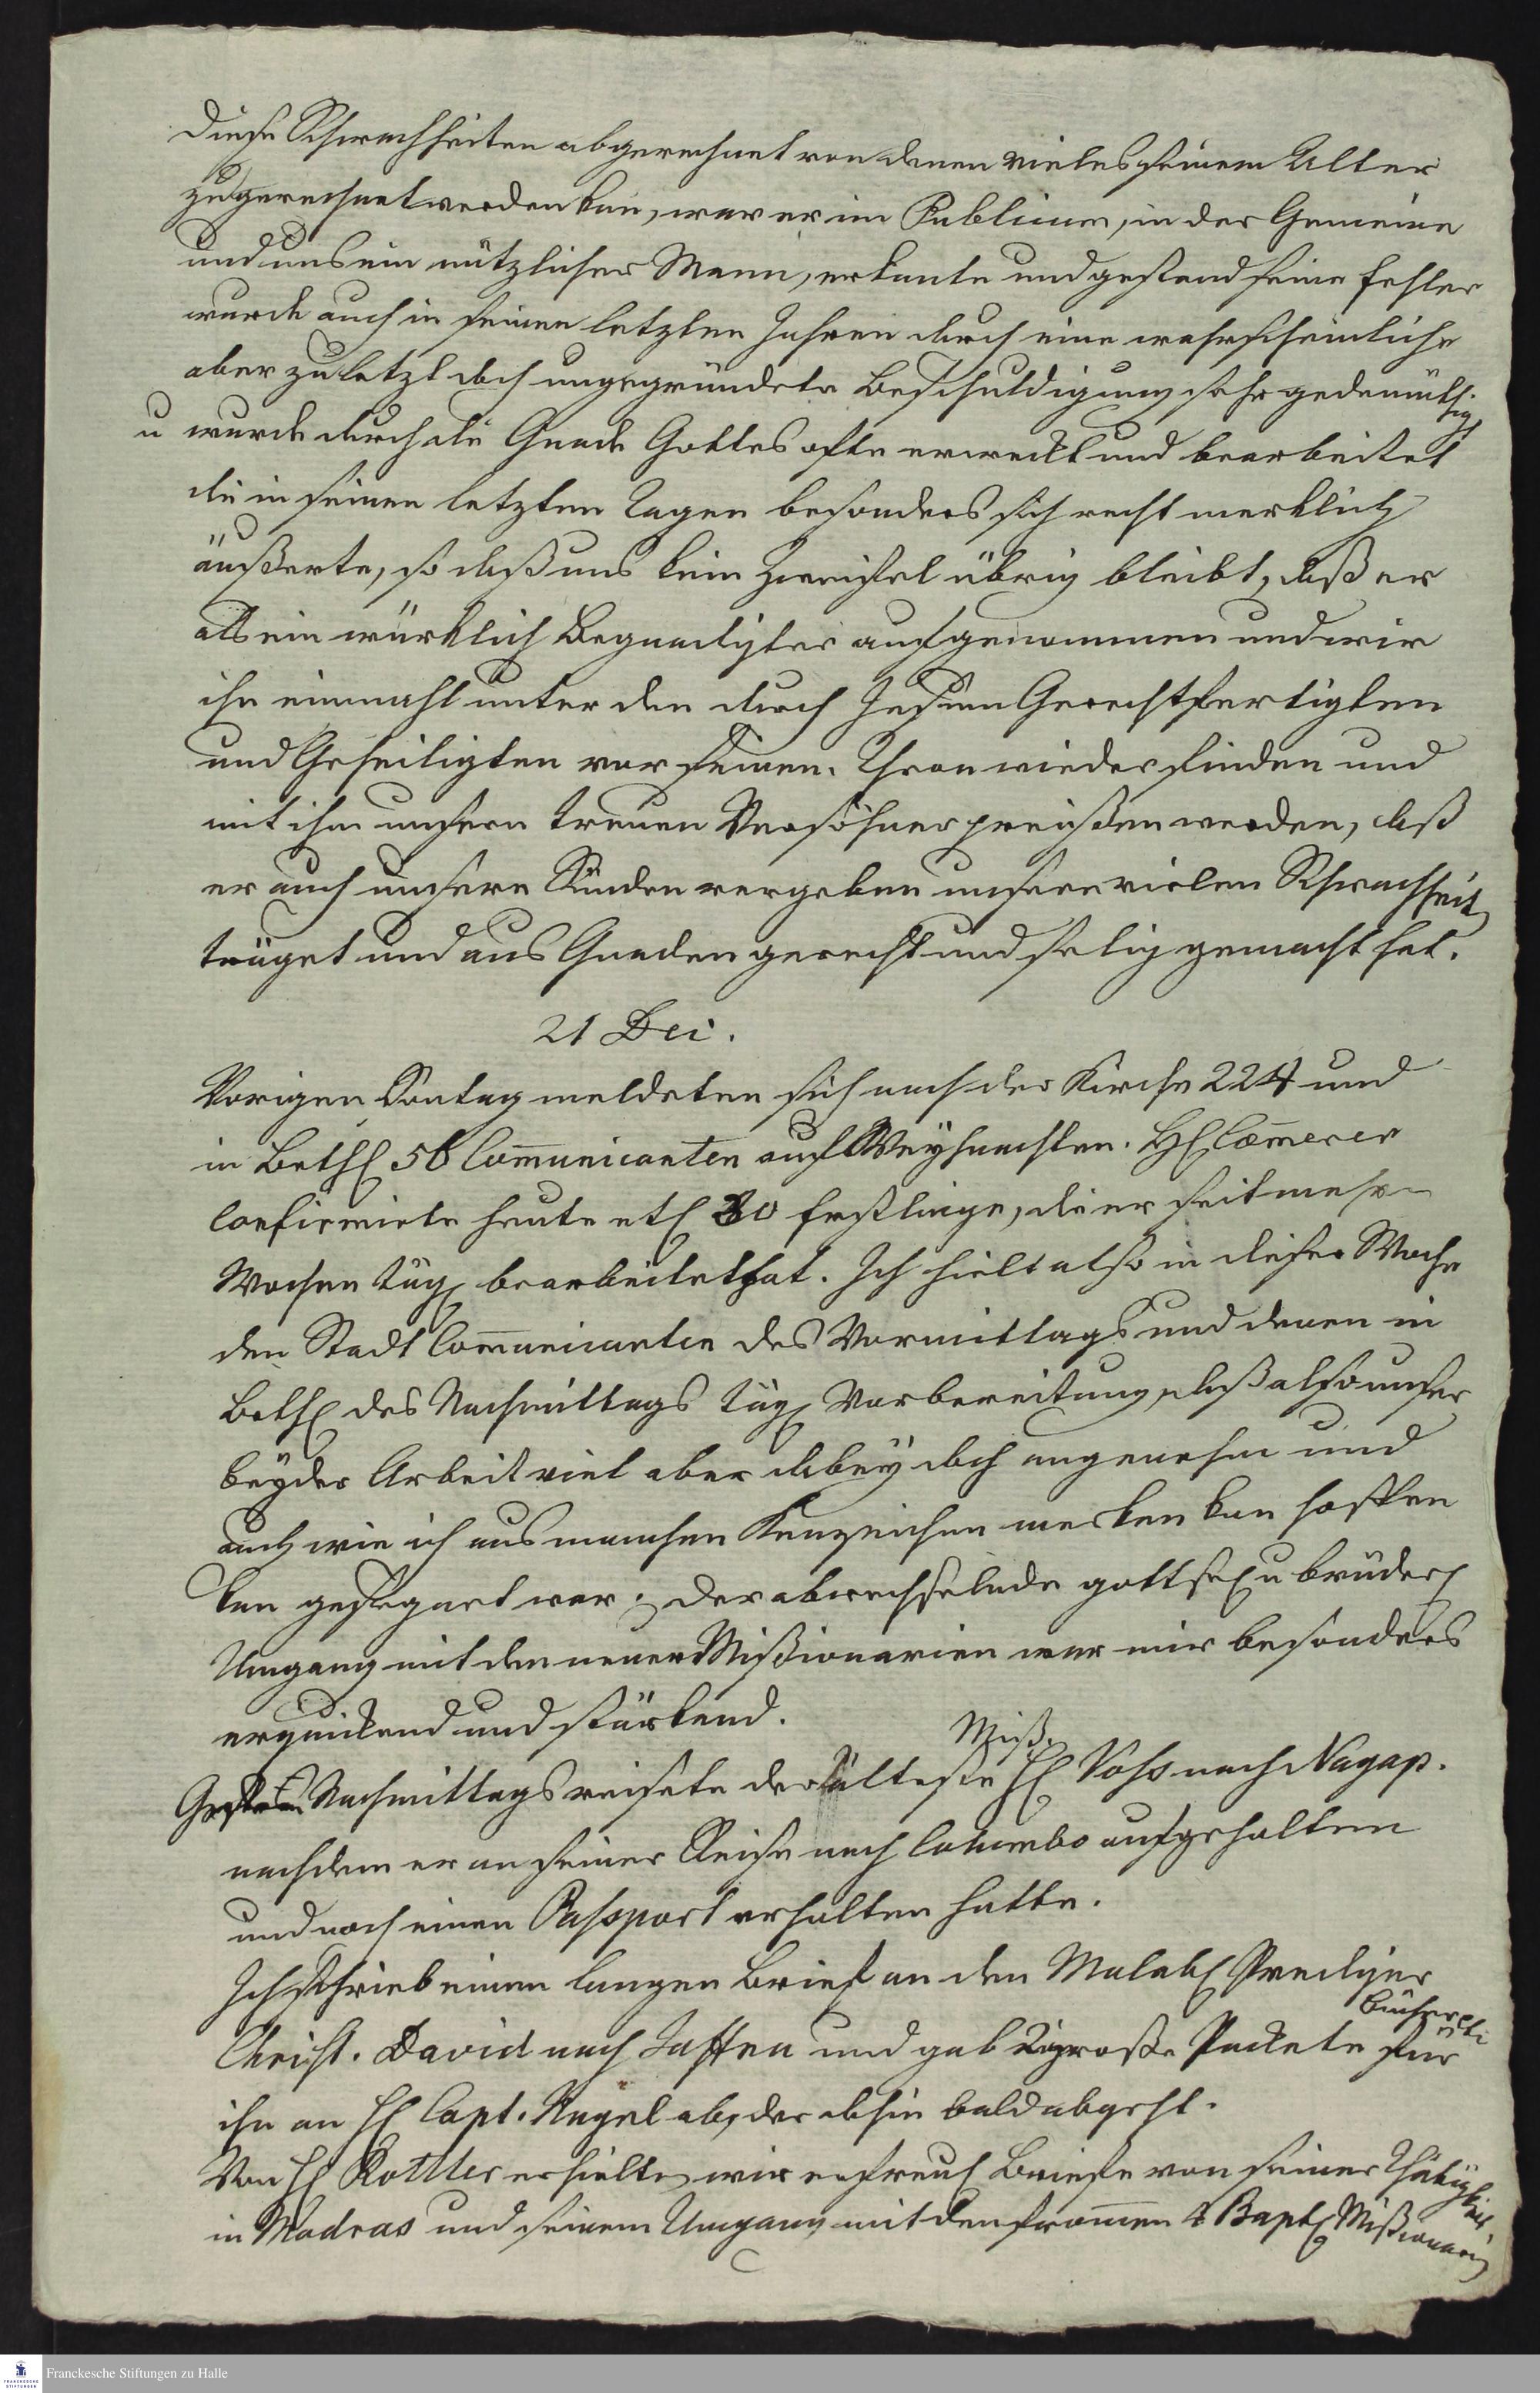 Diese Schwachheiten abgerechnet von denen vieles seinem Alter
zugerechnet werden kan, war er im Publicum, in der Gemeine
und uns ein nützlicher Mann, erkante und gestand seine Fehler
wurde auch in seinen letzten Jahren durch eine wahrscheinliche
aber zuletzt doch ungegründete Beschuldigung sehr gedemüthigt
u wurde durch die Gnade Gottes ofte erweckt und bearbeitet
die in seinen letzten Tagen besonders sich recht merklich
äußerte, so daß uns kein Zweifel übrig bleibt, daß er
als ein würklich Begnadigter aufgenommen und wir
ihn einmahl unter den durch Jesum Gerechtfertigten
und Geheiligten vor seinem Thron wieder finden und
mit ihm unsern treuen Versöhner preißen werden, daß
er auch unsere Sünden vergeben unsere vielen Schwachheit
träget und aus Gnaden gerecht und selig gemacht hat.
21 Dec.
Vorigen Sontag meldeten sich nach der Kirche 224 und
in Bethl 56 Com̄unicanten auf Weyhnachten. HE Cæm̄erer
confirmirte heute etl 30 Erstlinge, die er seit mehrn
Wochen tägl bearbeitet hat. Ich hielt also in dieser Woche
den Stadt Com̄unicanten des Vormittags und denen in
Bethl des Nachmittags tägl Vorbereitung, daß also unser
beyder Arbeit viel aber dabey doch angenehm und
auch wie ich aus manchen Kenzeichen merken kan hoffen
kan gesegnet war. Der abwechselnde gottsel u brüderl
Umgang mit den neuen Mißionarien war mir besonders
erquickend und stärkend.
Miß.
Gestern Nachmittags reisete der älteste HE Voss nach Nagap.
nachdem er an seiner Reise nach Columbo aufgehalten
und noch einen Passport erhalten hatte.
Ich schrieb einen langen Brief an den Malab Prediger
Bücher
Christ. David nach Jaffna und gab 2 große Packete für
ihn an HE Capt. Nagel ab, der dahin bald abgeht.
Von HE Rottler erhielte wir erfreul Briefe von seiner Thätigkeit
in Madras und seinem Umgang mit den from̄en 4 Bapt Mißionarie
Franckesche Stiftungen zu Halle